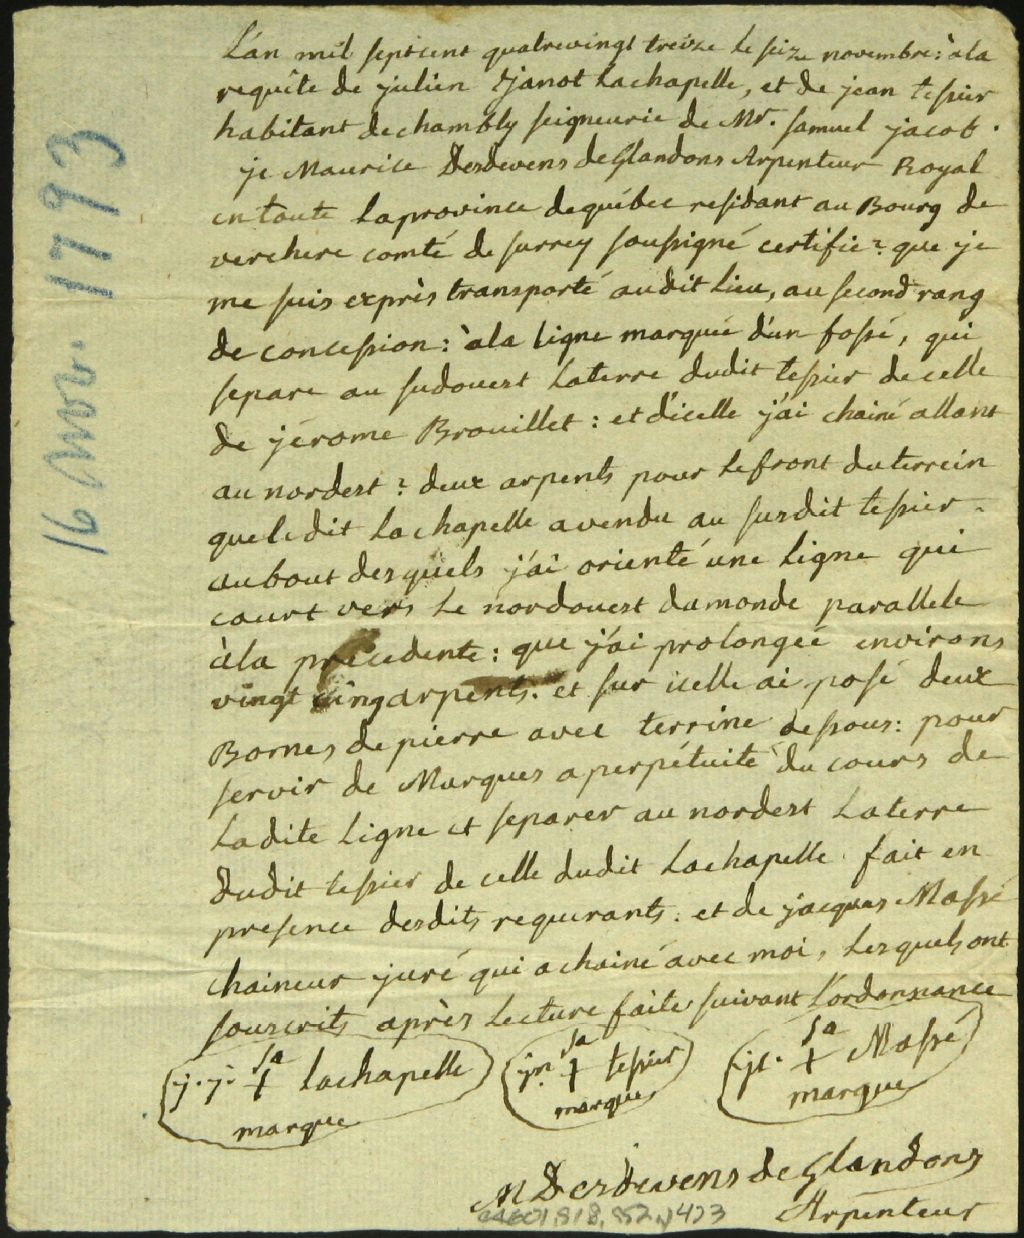 L'an mil septcent quatrevingt treize le seize novembre: à la
requête de julien Janot Lachapelle, et de jean tessier
habitant de chambly seigneurie de Mr. samuel jacob.
je Maurice Desdevens de Glandons Arpenteur Royal
en toute la province de québec residant au Bourg de
verchere comté de surrey soussigné certifie? que je
me suis exprès transporté audit Lieu, au second rang
de concession: à la ligne marquée d'un fossé, qui
separe au sudouest la terre dudit tessier de celle
de jérome Brouillet: et d'icelle j'ai chainé allant
au nordest? deux arpents pour le front du terrein
que le dit Lachapelle a vendu au susdit tessier.
au bout desquels j'ai orienté une Ligne qui
court vers le nordouest du monde parallele
à la précedente: que j'ai prolongée environs
vingt cinq arpents. et sur icelle ai posé deux
Bornes de pierre avec terrine dessous: pour
servir de Marques a perpétuité du cours de
la dite Ligne et separer au nordest la terre
dudit tessier de celle dudit Lachapelle. fait en
presence desdits requerants: et de jacques Massé
chaineur juré qui a chainé avec moi, lesquels ont
souscrits après Lecture faite suivant l'ordonnance
j. j. sa + Lachapelle marque
jn. sa + tessier marque
jc. sa + Massé marque
M Desdevens de Glandons
Arpenteur
16 Nov. 1793